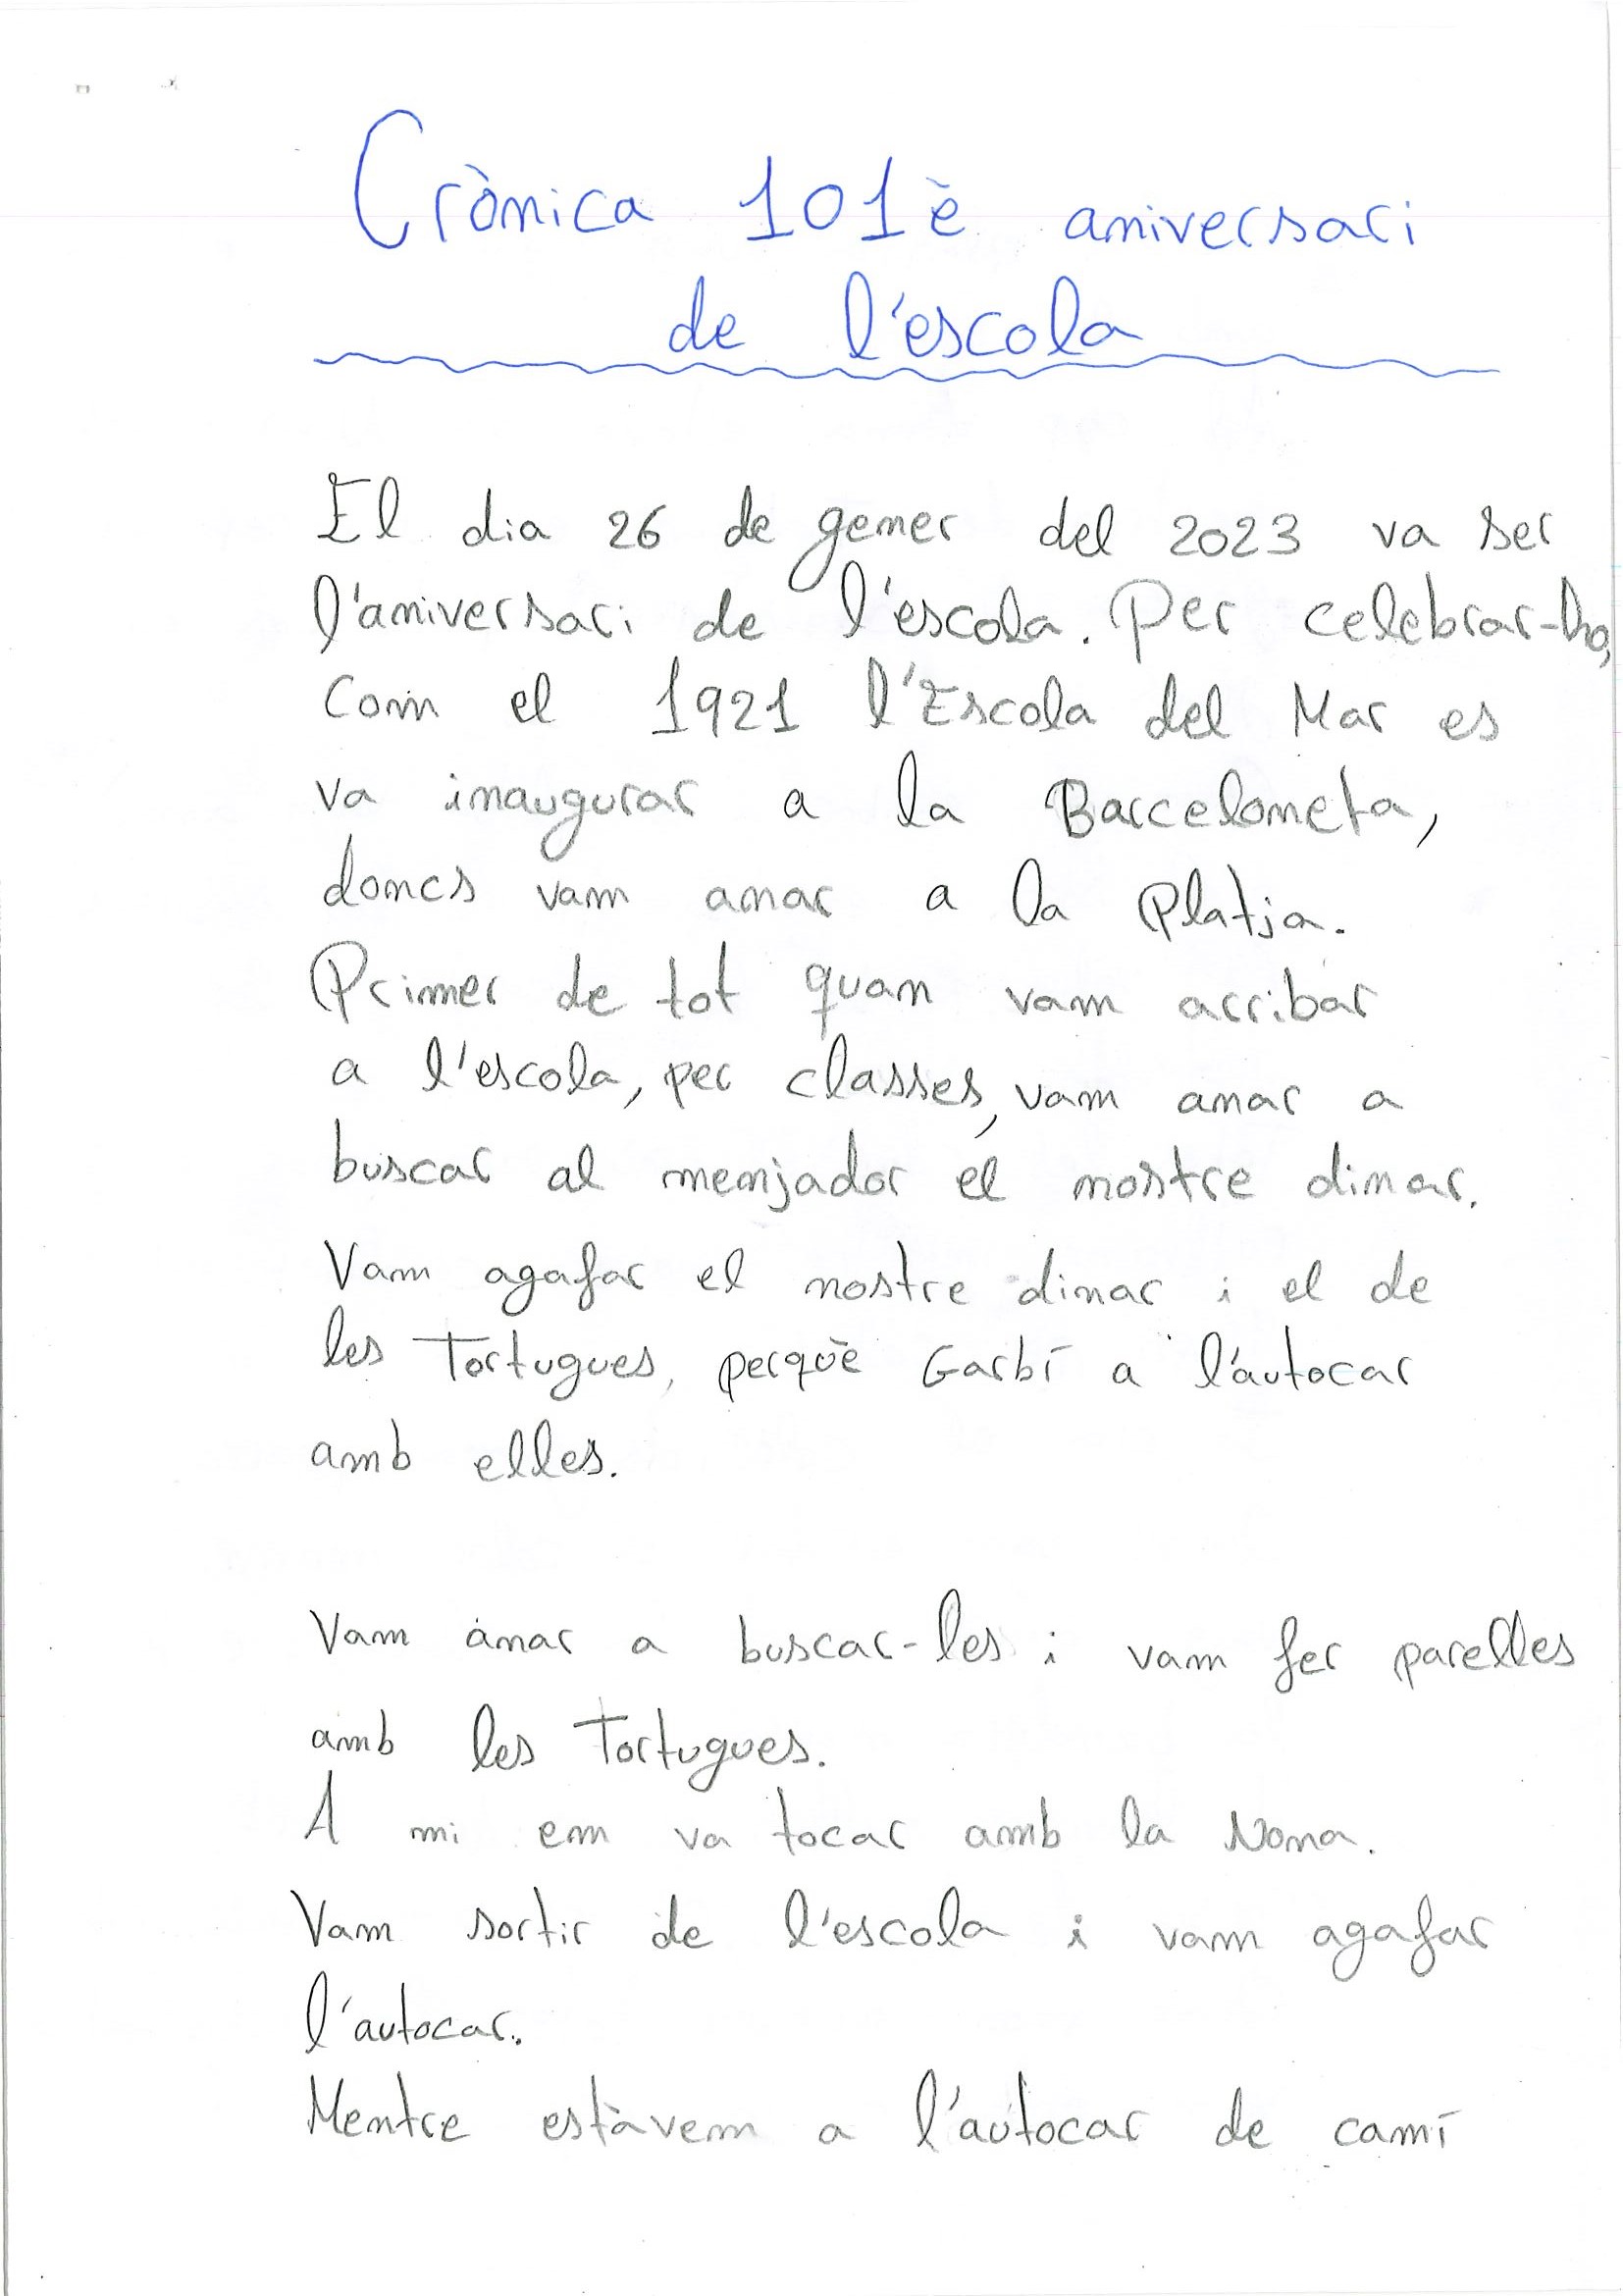 Crònica 101è aniversari
de l'escola
El dia 26 de gener del 2023 va ser
l'aniversari de l'escola. Per celebrar-ho,
Com el 1921 l'Escola del Mar es
va inaugurar a la Barceloneta,
doncs vam anar a la Platja.
Primer de tot quan vam arribar
a l'escola, per classes, vam anar a
buscar al menjador el nostre dinar.
Vam agafar el nostre dinar i el de
les Tortugues, perquè Garbí a l'autocar
amb elles.
Vam anar a buscar-les i vam fer parelles
amb les Tortugues.
A mi em va tocar amb la Nona.
Vam sortir de l'escola i vam agafar
l'autocar.
Mentre estàvem a l'autocar de camí